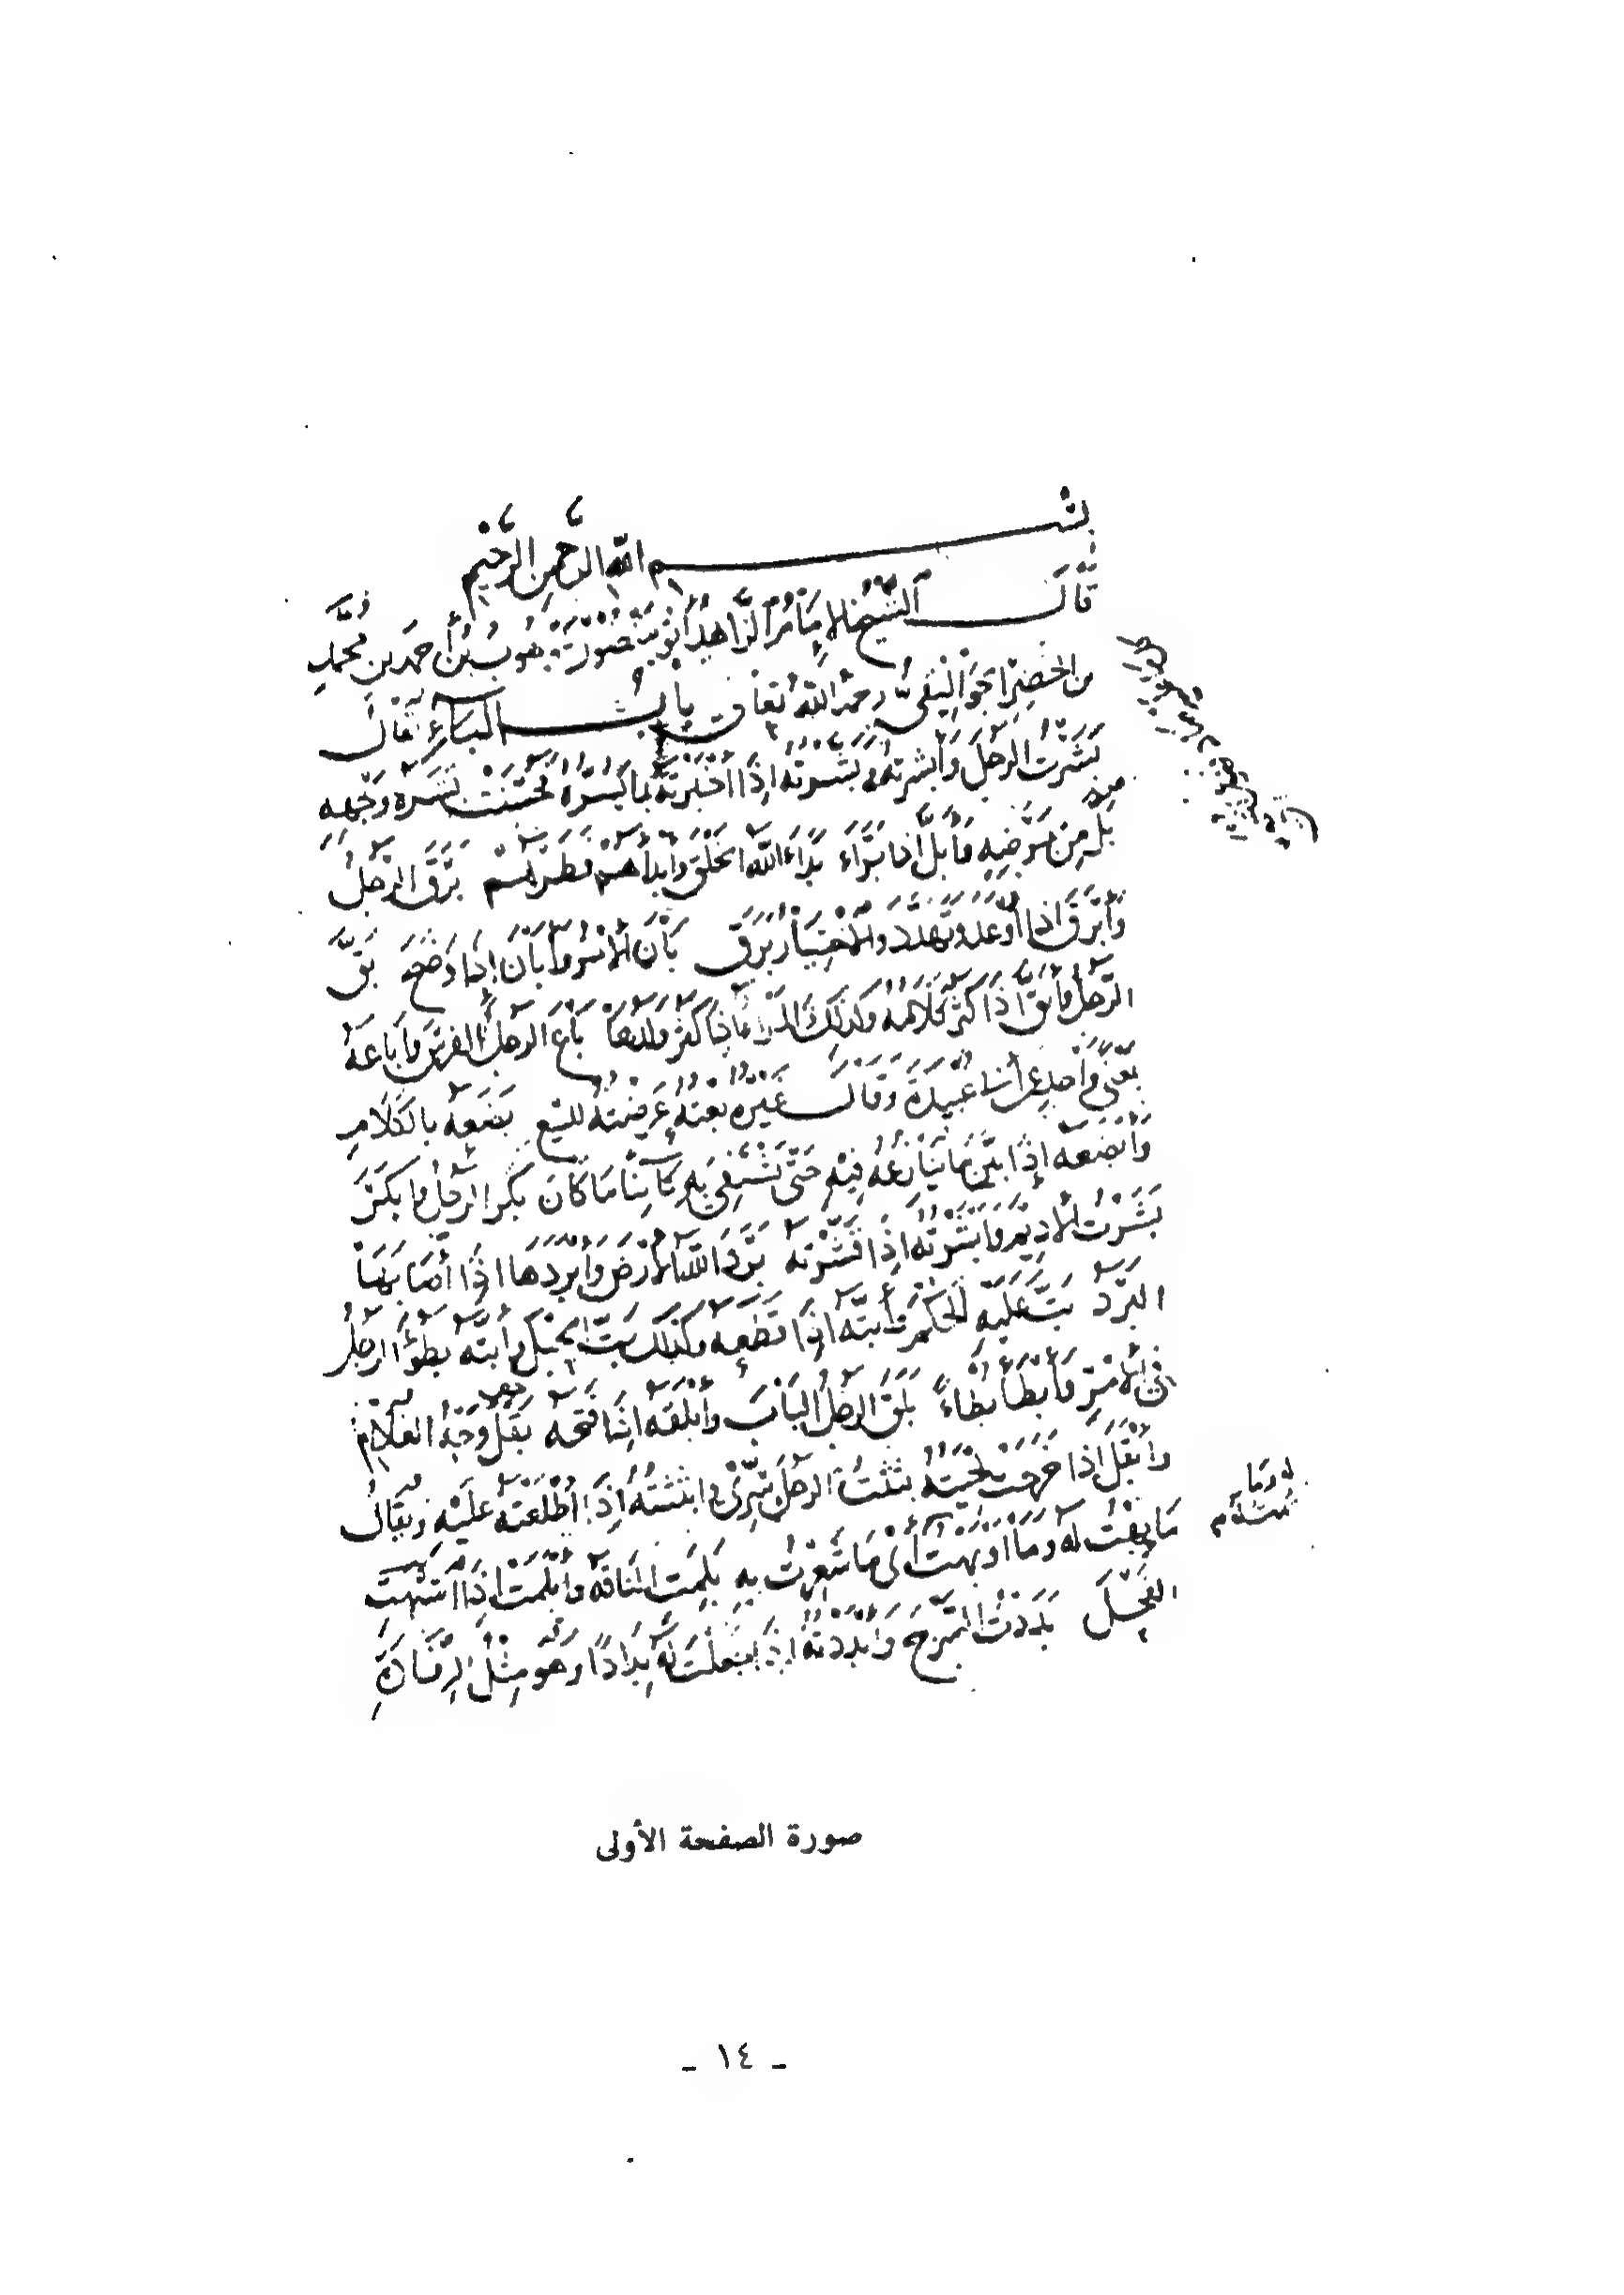 بسم الله الرحمن الرحيم
قال الشيخ الإمام الزاهد أبو منصور موهوب بن أحمد بن محمد
بن الخضر الجواليقي رحمه الله تعالى باب الباء يقال
بَشَرْتُ الرجلَ وأبشرته وبشّرته إذا أخبرته بما يسره فحسنت بشرة وجهه
بلّ من مرضه وأبلّ إذا برأ بدأ الله الخلق وأبدأهم فطرهم برق الرجل
وأبرق إذا أوعد وتهدد والاختيار برق بان الأمر وأبان إذا وضح بقّ
الرجل وأبقّ إذا كثر كلامه وكذلك المرأة إذا كثر ولدها باع الرجل الفرس وأباعه
بمعنى واحد عن أبي عبيدة وقال غيره بعته عرضته للبيع بضعه بالكلام
وأبضعه إذا بيّن له ما ينازعه فيه حتى يشتفي به كائنا ما كان بكر الرجل وأبكر
بشرت الأديم وأبشرته إذا قشرته برد الله الأرض وأبردها إذا أصابها
البرد بتّ عليه الحكم وأبته إذا قطعه وكذلك بتّ الحبل وأبته بطؤ الرجل
في الأمر وأبطأ بطاءً بلق الرجل الباب وأبلقه إذا فتحه بقل وجه الغلام
وأبقل إذا خرجت لحيته بثثت الرجل سري وأبثثته إذا أطلعته عليه ويقال
ما بهت له وما أوبهت أي ما شعرت به بلمت الناقة وأبلمت إذا اشتهت
الفحل بددت السرج وأبددته إذا جعلت له بدادا وهو مثل الرفادة
صورة الصفحة الأولى
- ١٤ -